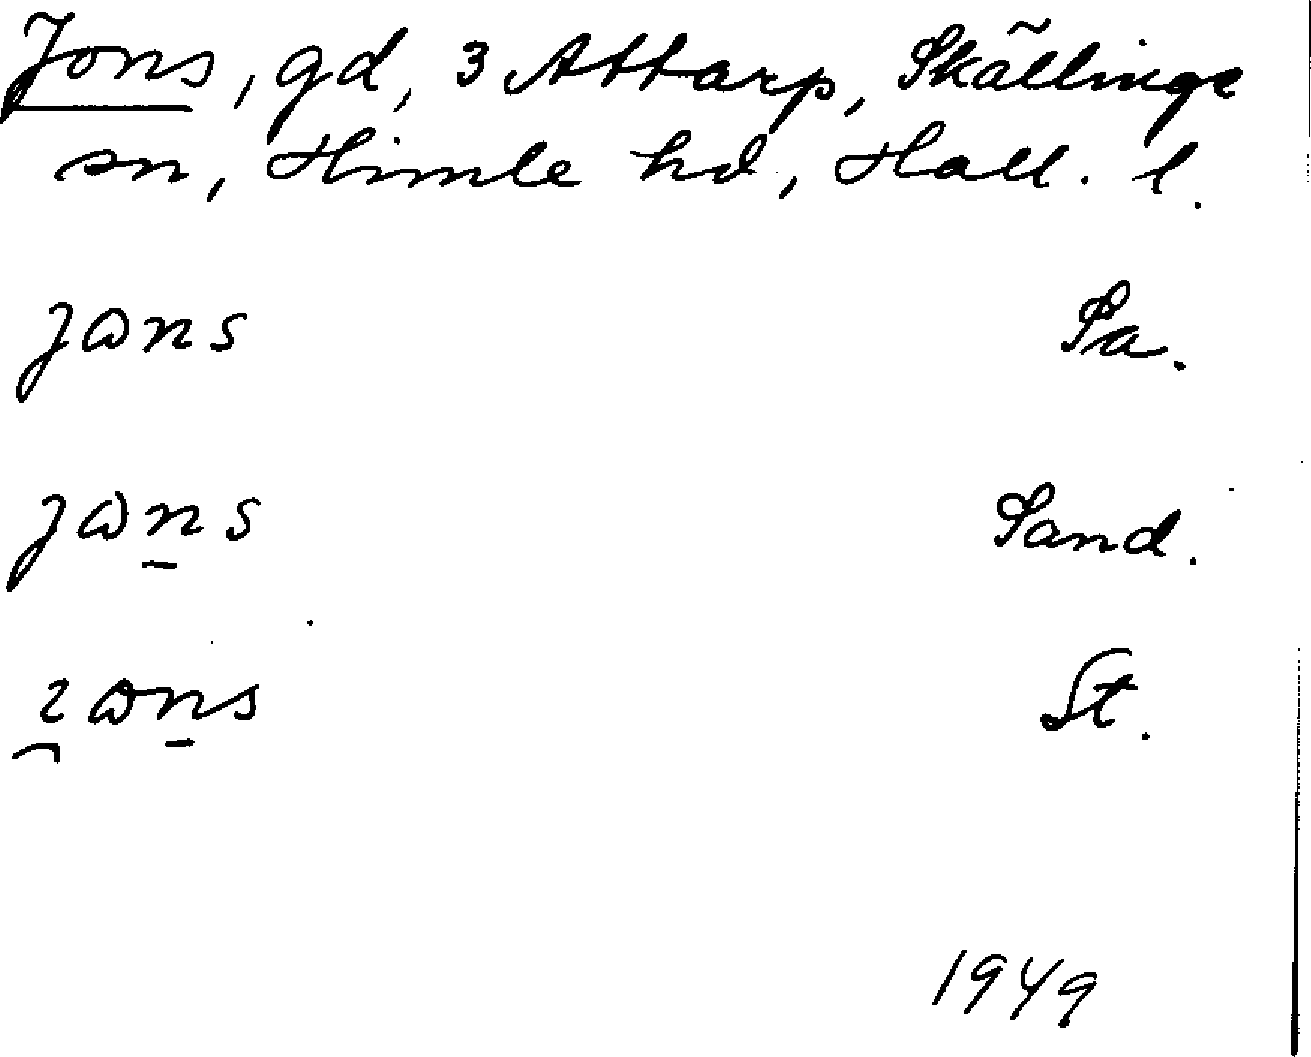 Jons, gd, 3 Attarp, Skällinge
sn, Himle hd, Hall. l.
jɷns Sa.
jɷn̠s Sand.
ɷn̠s St.
1949